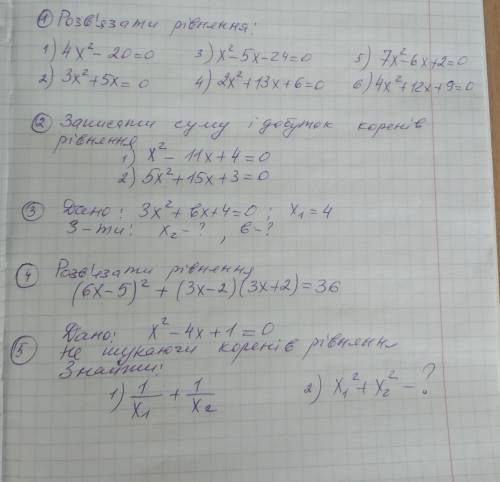 ① Розв'язати рівняння:
1) 4x² - 20 = 0   3) x² - 5x - 24 = 0   5) 7x² - 6x + 2 = 0
2) 3x² + 5x = 0   4) 2x² + 13x + 6 = 0   6) 4x² + 12x + 9 = 0
② Записати суму і добуток коренів
рівняння
1) x² - 11x + 4 = 0
2) 5x² + 15x + 3 = 0
③ Дано: 3x² + вx + 4 = 0 ; x₁ = 4
З-ти: x₂ - ? , в - ?
④ Розв'язати рівняння
(6x - 5)² + (3x - 2)(3x + 2) = 36
⑤ Дано: x² - 4x + 1 = 0
Не шукаючи коренів рівняння
Знайти:
1) 1/x₁ + 1/x₂   2) x₁² + x₂² - ?